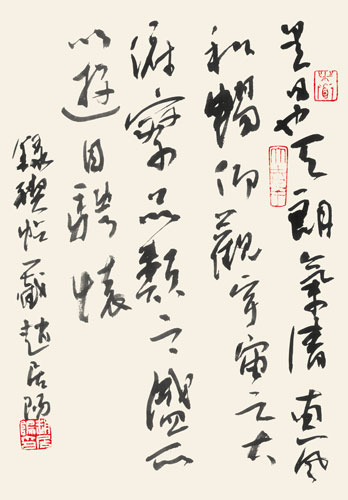 是日也天朗氣清惠風
和暢仰觀宇宙之大
俯察品類之盛所
以遊目騁懷
錄禊帖一 趙居陽